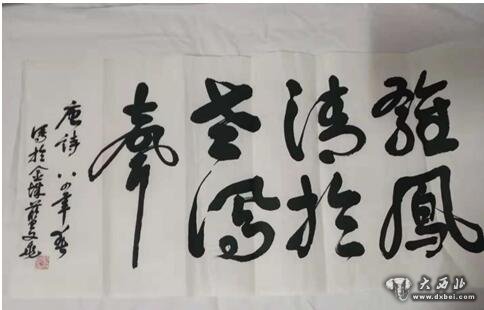 雛鳳
清於
老鳳
聲
唐詩 八四年春
寫於金城
大西北
www.dxbei.com